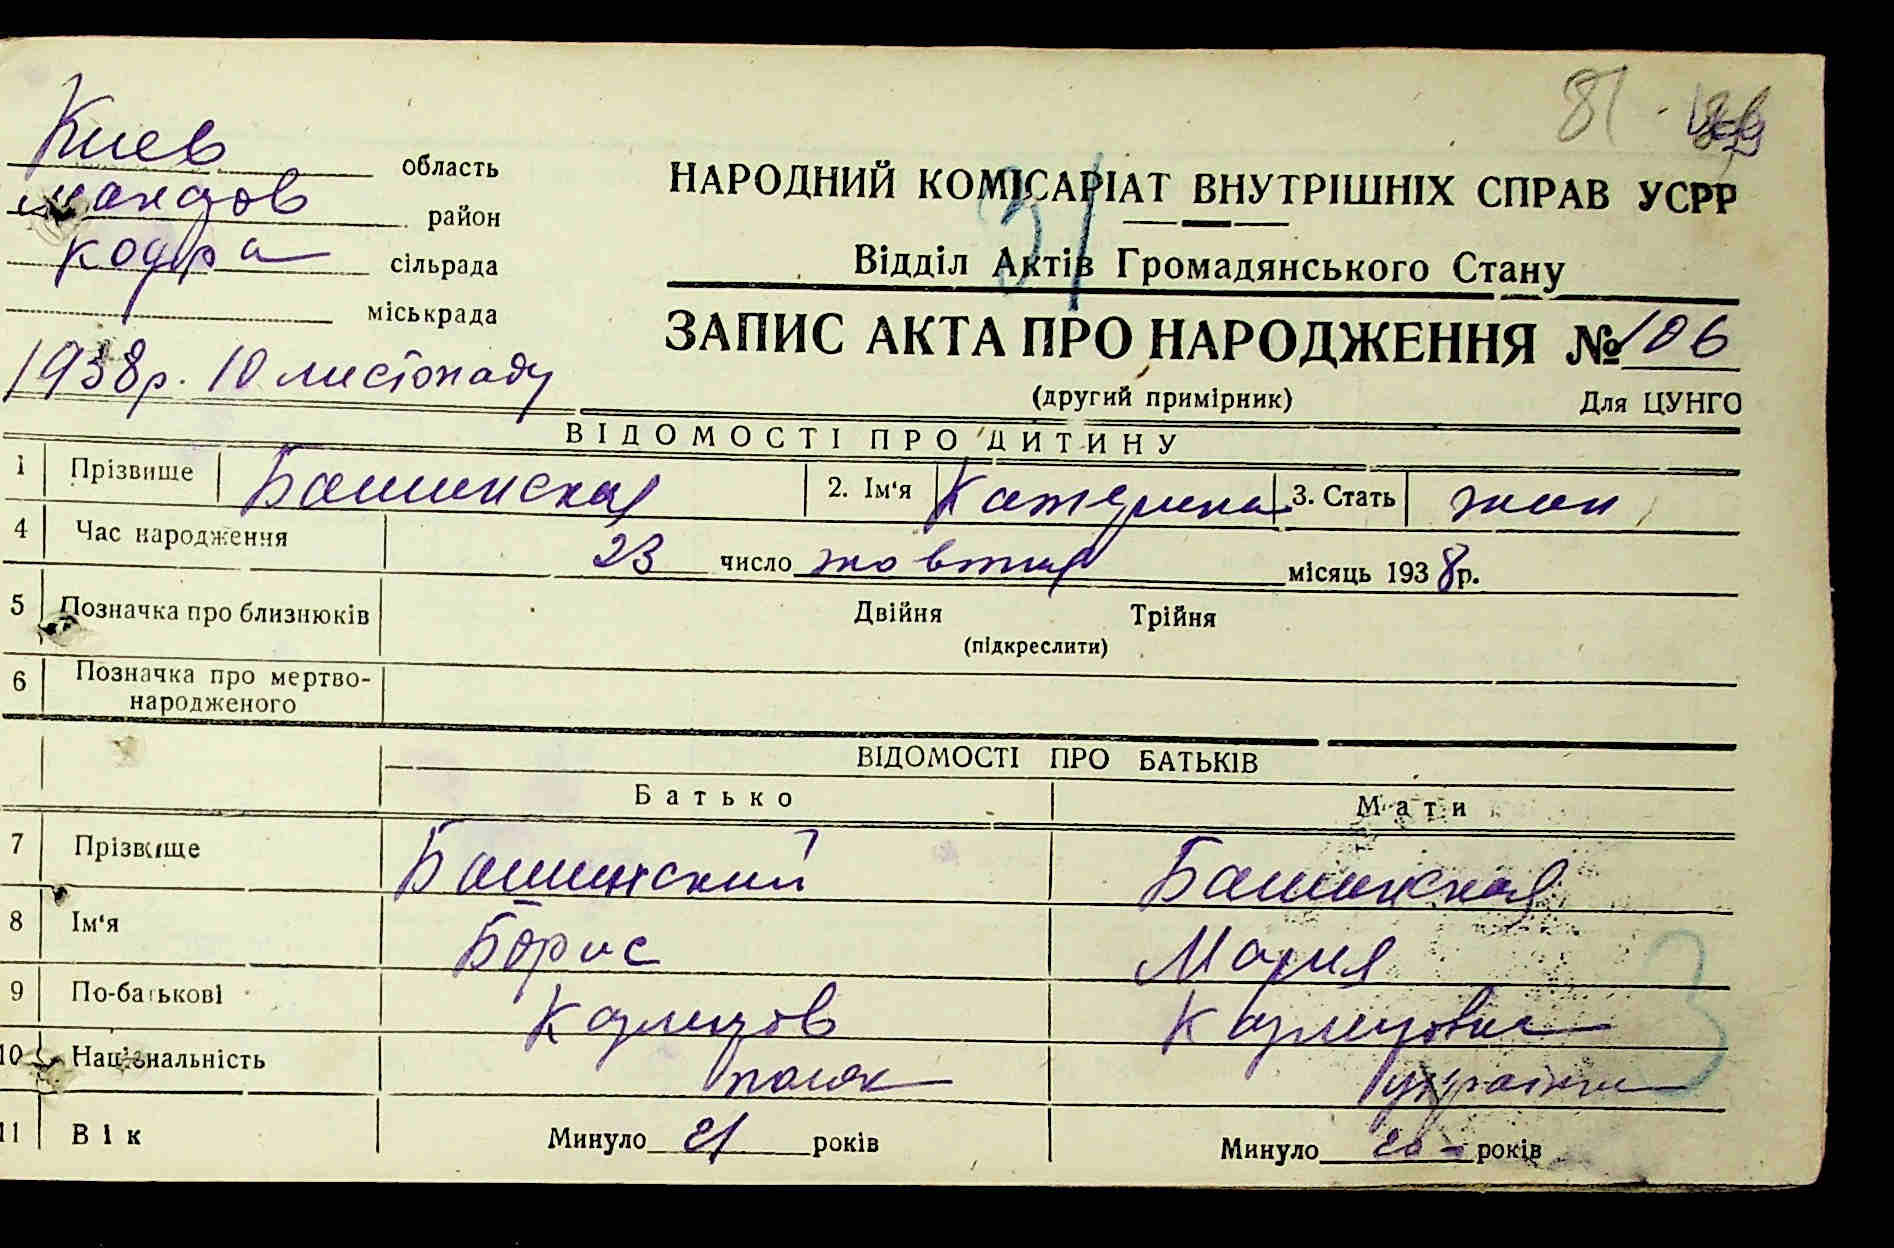 81
Киев область
район
Кодра сільрада
міськрада
1938р. 10 листопаду
НАРОДНИЙ КОМІСАРІАТ ВНУТРІШНІХ СПРАВ УСРР
31
Відділ Актів Громадянського Стану
ЗАПИС АКТА ПРО НАРОДЖЕННЯ № 106
(другий примірник) Для ЦУНГО
ВІДОМОСТІ ПРО ДИТИНУ
1 Прізвище Башинская 2. Ім'я Катерина 3. Стать жен
4 Час народження 23 число жовтня місяць 1938р.
5 Позначка про близнюків Двійня Трійня
(підкреслити)
6 Позначка про мертво-
народженого
ВІДОМОСТІ ПРО БАТЬКІВ
Батько Мати
7 Прізвище Башинский Башинская
8 Ім'я Борис Мария
9 По-батькові
3
10 Національність поляк
11 Вік Минуло 21 років Минуло 20 років